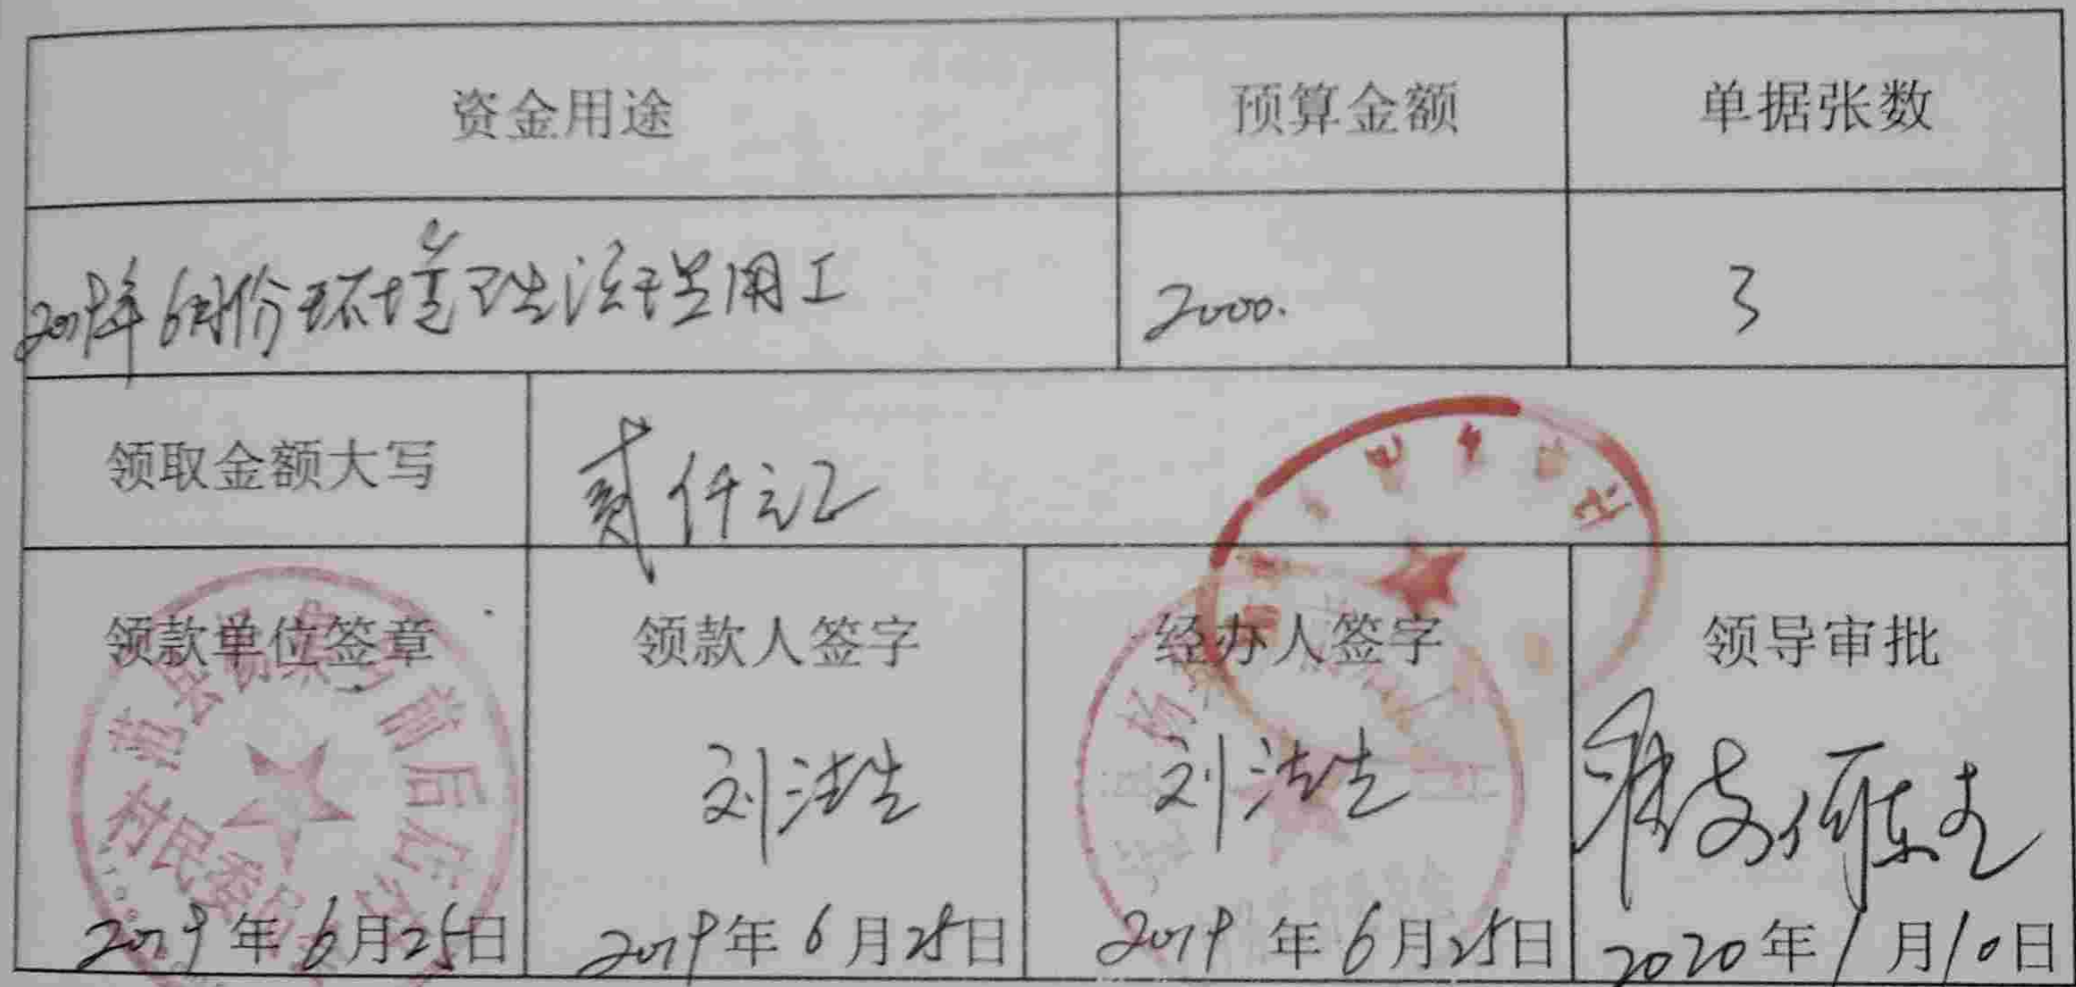 资金用途 预算金额 单据张数
2019年6月份环境卫生治理用工 2000. 3
领取金额大写 贰仟元
领款单位签章 领款人签字 经办人签字 领导审批
范县杨集乡前后石村
村民委员
刘法生 刘法生
2019年6月25日 2019年6月25日 2019年6月25日 2020年1月10日